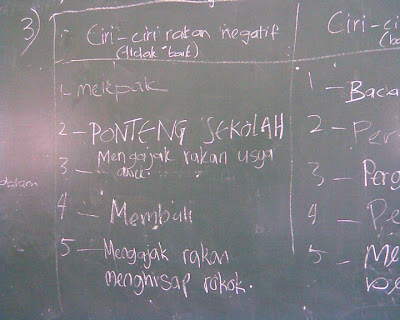 3)
Ciri-ciri rakan negatif
(tidak baik)
1- melepak
2- PONTENG SEKOLAH
3- Mengajak rakan usya
awek.
4 - Membuli
5 - Mengajak rakan
menghisap rokok.
dalam
Ciri-ci
(ba
1 - Baca
2 - Per
3 - Perg
4 - Pe
5 - Me